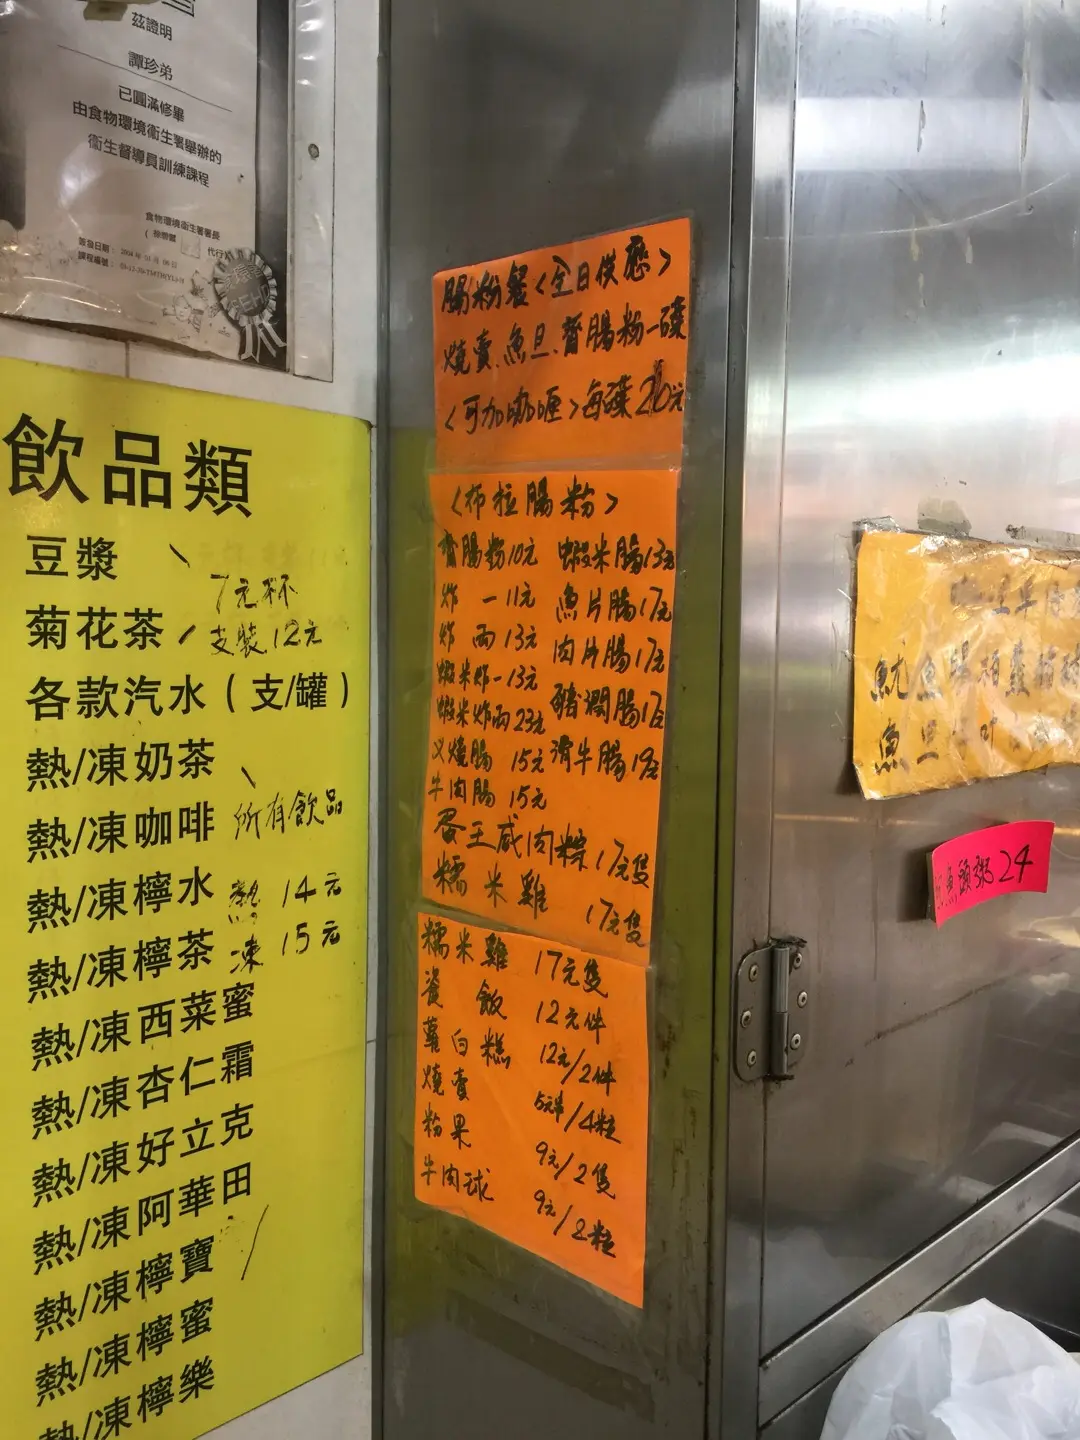 茲證明
譚珍弟
已圓滿修畢
由食物環境衞生署舉辦的
衞生督導員訓練課程
食物環境衞生署署長
代行
簽發日期：
課程編號：
飲品類
豆漿
7元杯
菊花茶
支裝12元
各款汽水（支/罐）
熱/凍奶茶
熱/凍咖啡 所有飲品
熱/凍檸水 熱 14元
熱/凍檸茶 凍 15元
熱/凍西菜蜜
熱/凍杏仁霜
熱/凍好立克
熱/凍阿華田
熱/凍檸寶
熱/凍檸蜜
熱/凍檸樂
腸粉餐<全日供應>
燒賣.魚旦.齋腸粉一碟
<可加咖喱>每碟26元
<布拉腸粉>
齋腸粉10元 蝦米腸13元
炸一11元 魚片腸17元
炸兩13元 肉片腸17元
蝦米炸一13元 豬潤腸17元
蝦米炸兩23元 滑牛腸19元
叉燒腸 15元
牛肉腸 15元
蛋王咸肉粽17元隻
糯米雞 17元隻
糯米雞 17元隻
瓷飯 12元件
蘿白糕 12元/2件
燒賣 /4粒
粉果 9元/2隻
牛肉球 9元/2粒
魷魚腸
魚旦
魚頭粥24